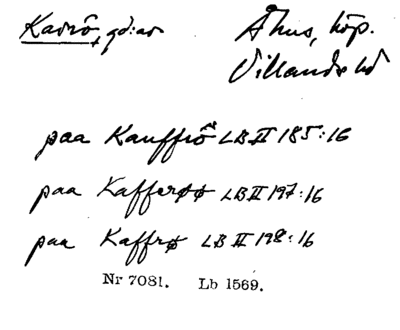 Kavrö, gd:ar
Åhus, köp.
Villands hd
paa Kauffrö LB II 185:16
paa Kafferøø LB II 197:16
paa Kaffrø LB II 198:16
Nr 7081. Lb 1569.